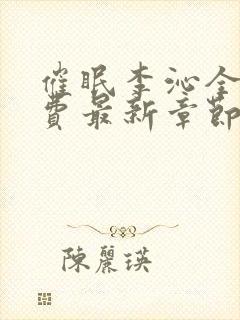 催眠李沁全
費最新章節
陳麗瑛